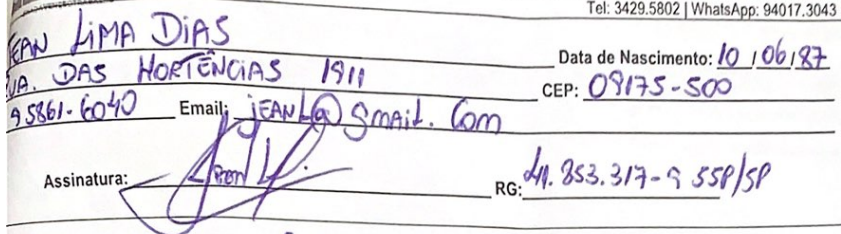 Tel: 3429.5802 | WhatsApp: 94017.3043
JEAN LIMA DIAS
Data de Nascimento: 10/06/87
UA. DAS HORTÊNCIAS 1911
CEP: 09175-500
95861-6040 Email: JEANL@gmail.com
Assinatura:
RG: 41.853.317-9 SSP/SP